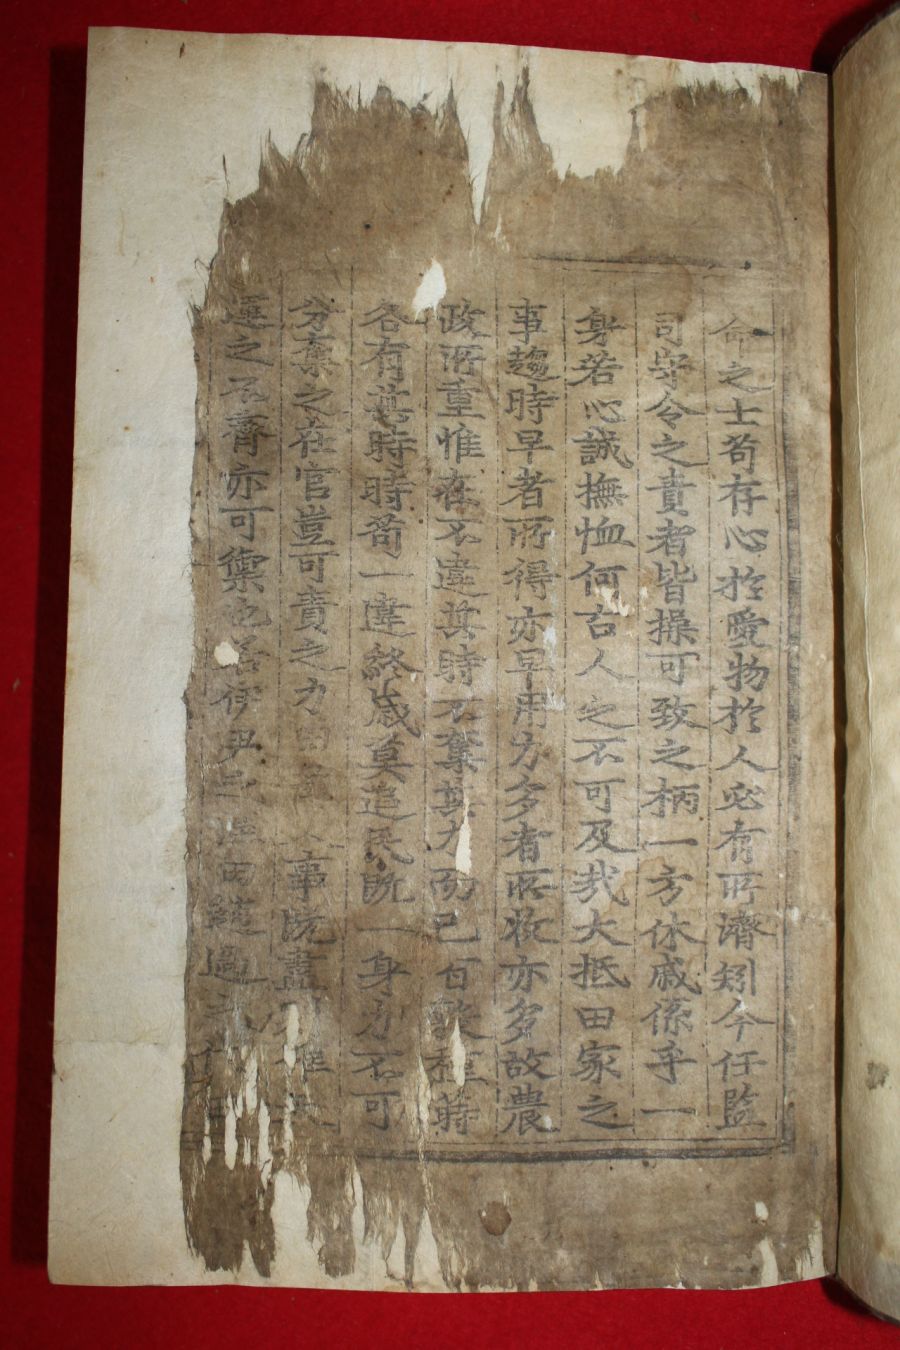 命之士苟存心於愛物於人必有所濟矧今任監
司守令之責者皆操可致之柄一方休戚係乎一
身若心誠撫恤何古人之不可及哉大抵田家之
事趨時早者所得亦早用力多者所收亦多故農
政所重惟在不違其時不奪其力而已百穀種蒔
各有其時時苟一違終歲莫追民旣一身力不可
分奪之在官豈可責之力田 事旣盡 民
運之不齊亦可禳也若伊尹 田